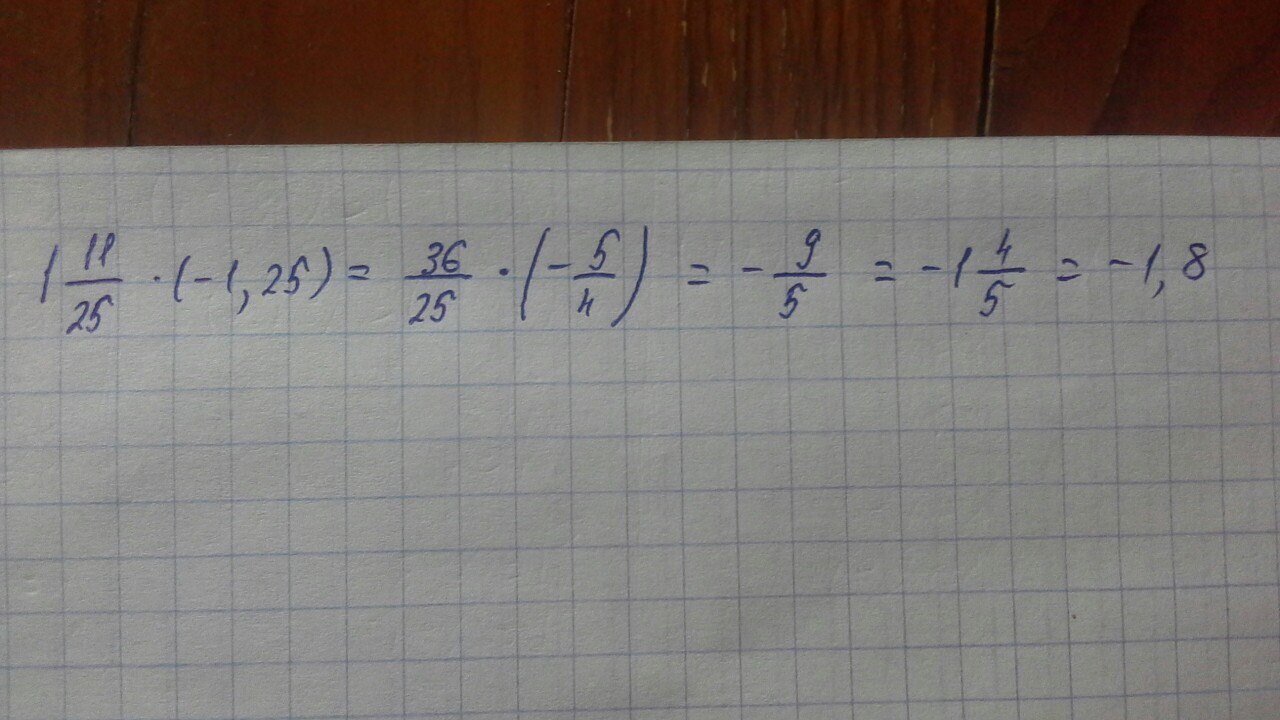 1 11/25 · (-1,25) = 36/25 · (-5/4) = -9/5 = -1 4/5 = -1,8